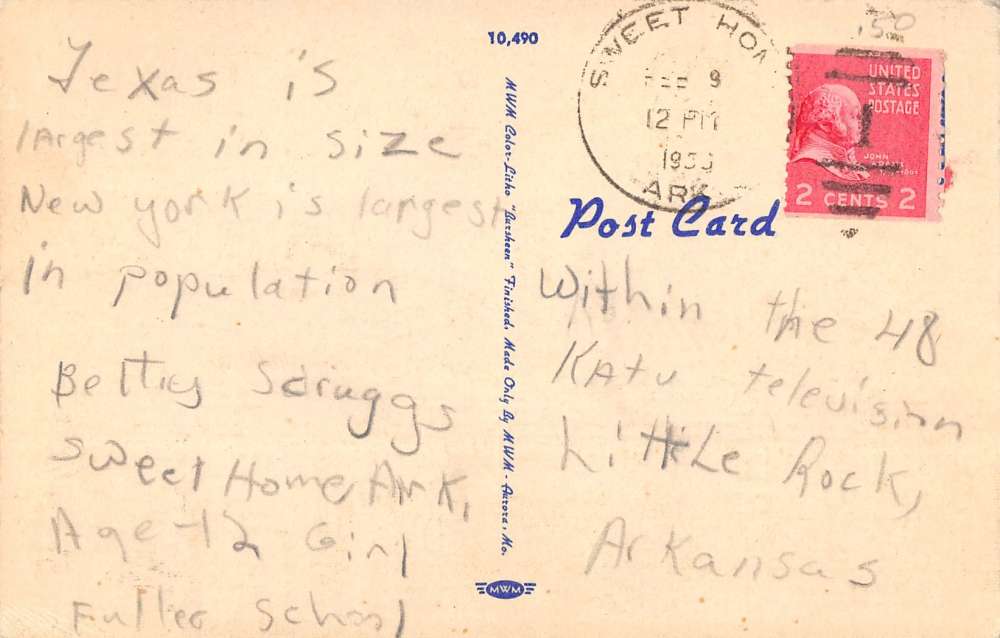 Texas is
largest in size
New york is largest
in population
Bettig Scruggs
Sweet Home, Ark,
Age -12 Girl
Fuller School
10,490
MWM Color-Litho "Bursheen" Finished, Made Only By MWM - Aurora, Mo.
MWM
SWEET HOM
FEB 9
12 PM
ARK
150
UNITED
STATES
POSTAGE
1
JOHN
2 CENTS 2
Post Card
Within the 48
KAtu television
Little Rock,
Arkansas